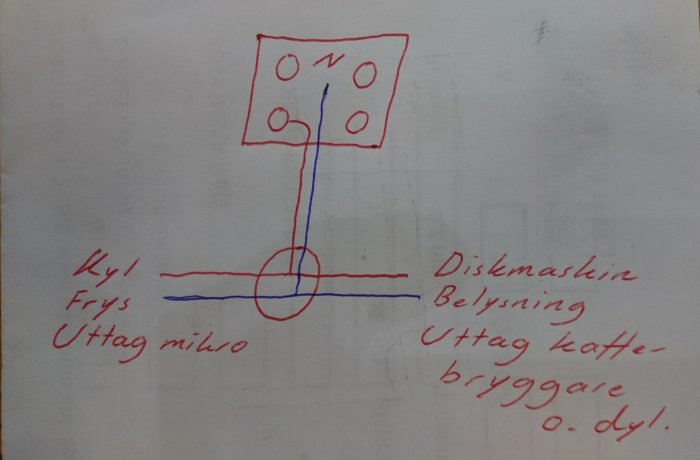 N
Kyl
Frys
Uttag mikro
Diskmaskin
Belysning
Uttag kaffe-
bryggare
o. dyl.